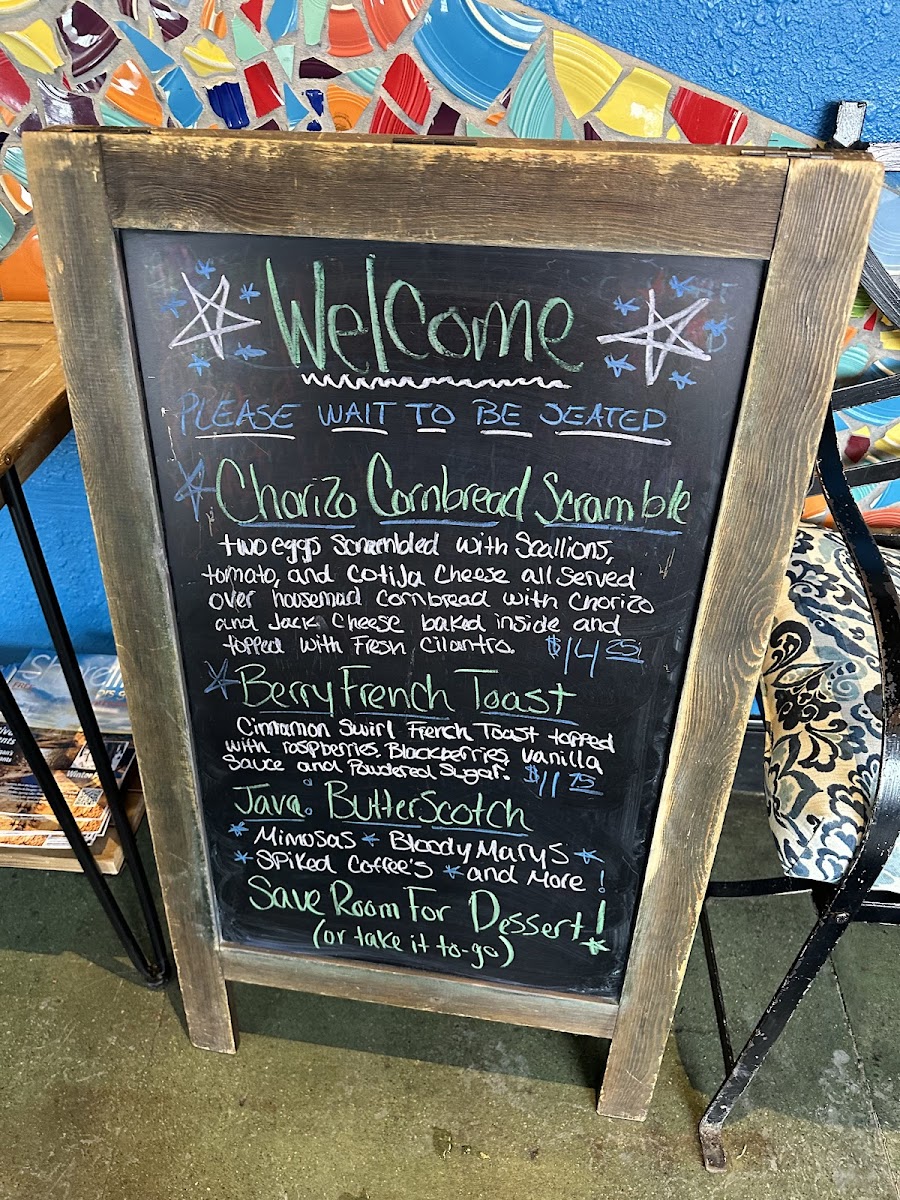 Welcome
PLEASE WAIT TO BE SEATED
Chorizo Cornbread Scramble
two eggs scrambled with Scallions,
tomato, and Cotija Cheese all served
over housemad Cornbread with Chorizo
and Jack Cheese baked inside and
topped with Fresh Cilantro. $14.25
Berry French Toast
Cinnamon Swirl French Toast topped
with raspberries, Blackberries, Vanilla
Sauce and Powdered Sugar. $11.75
Java: ButterScotch
Mimosas * Bloody Marys *
* Spiked Coffee's * and More!
Save Room For Dessert!
(or take it to-go)